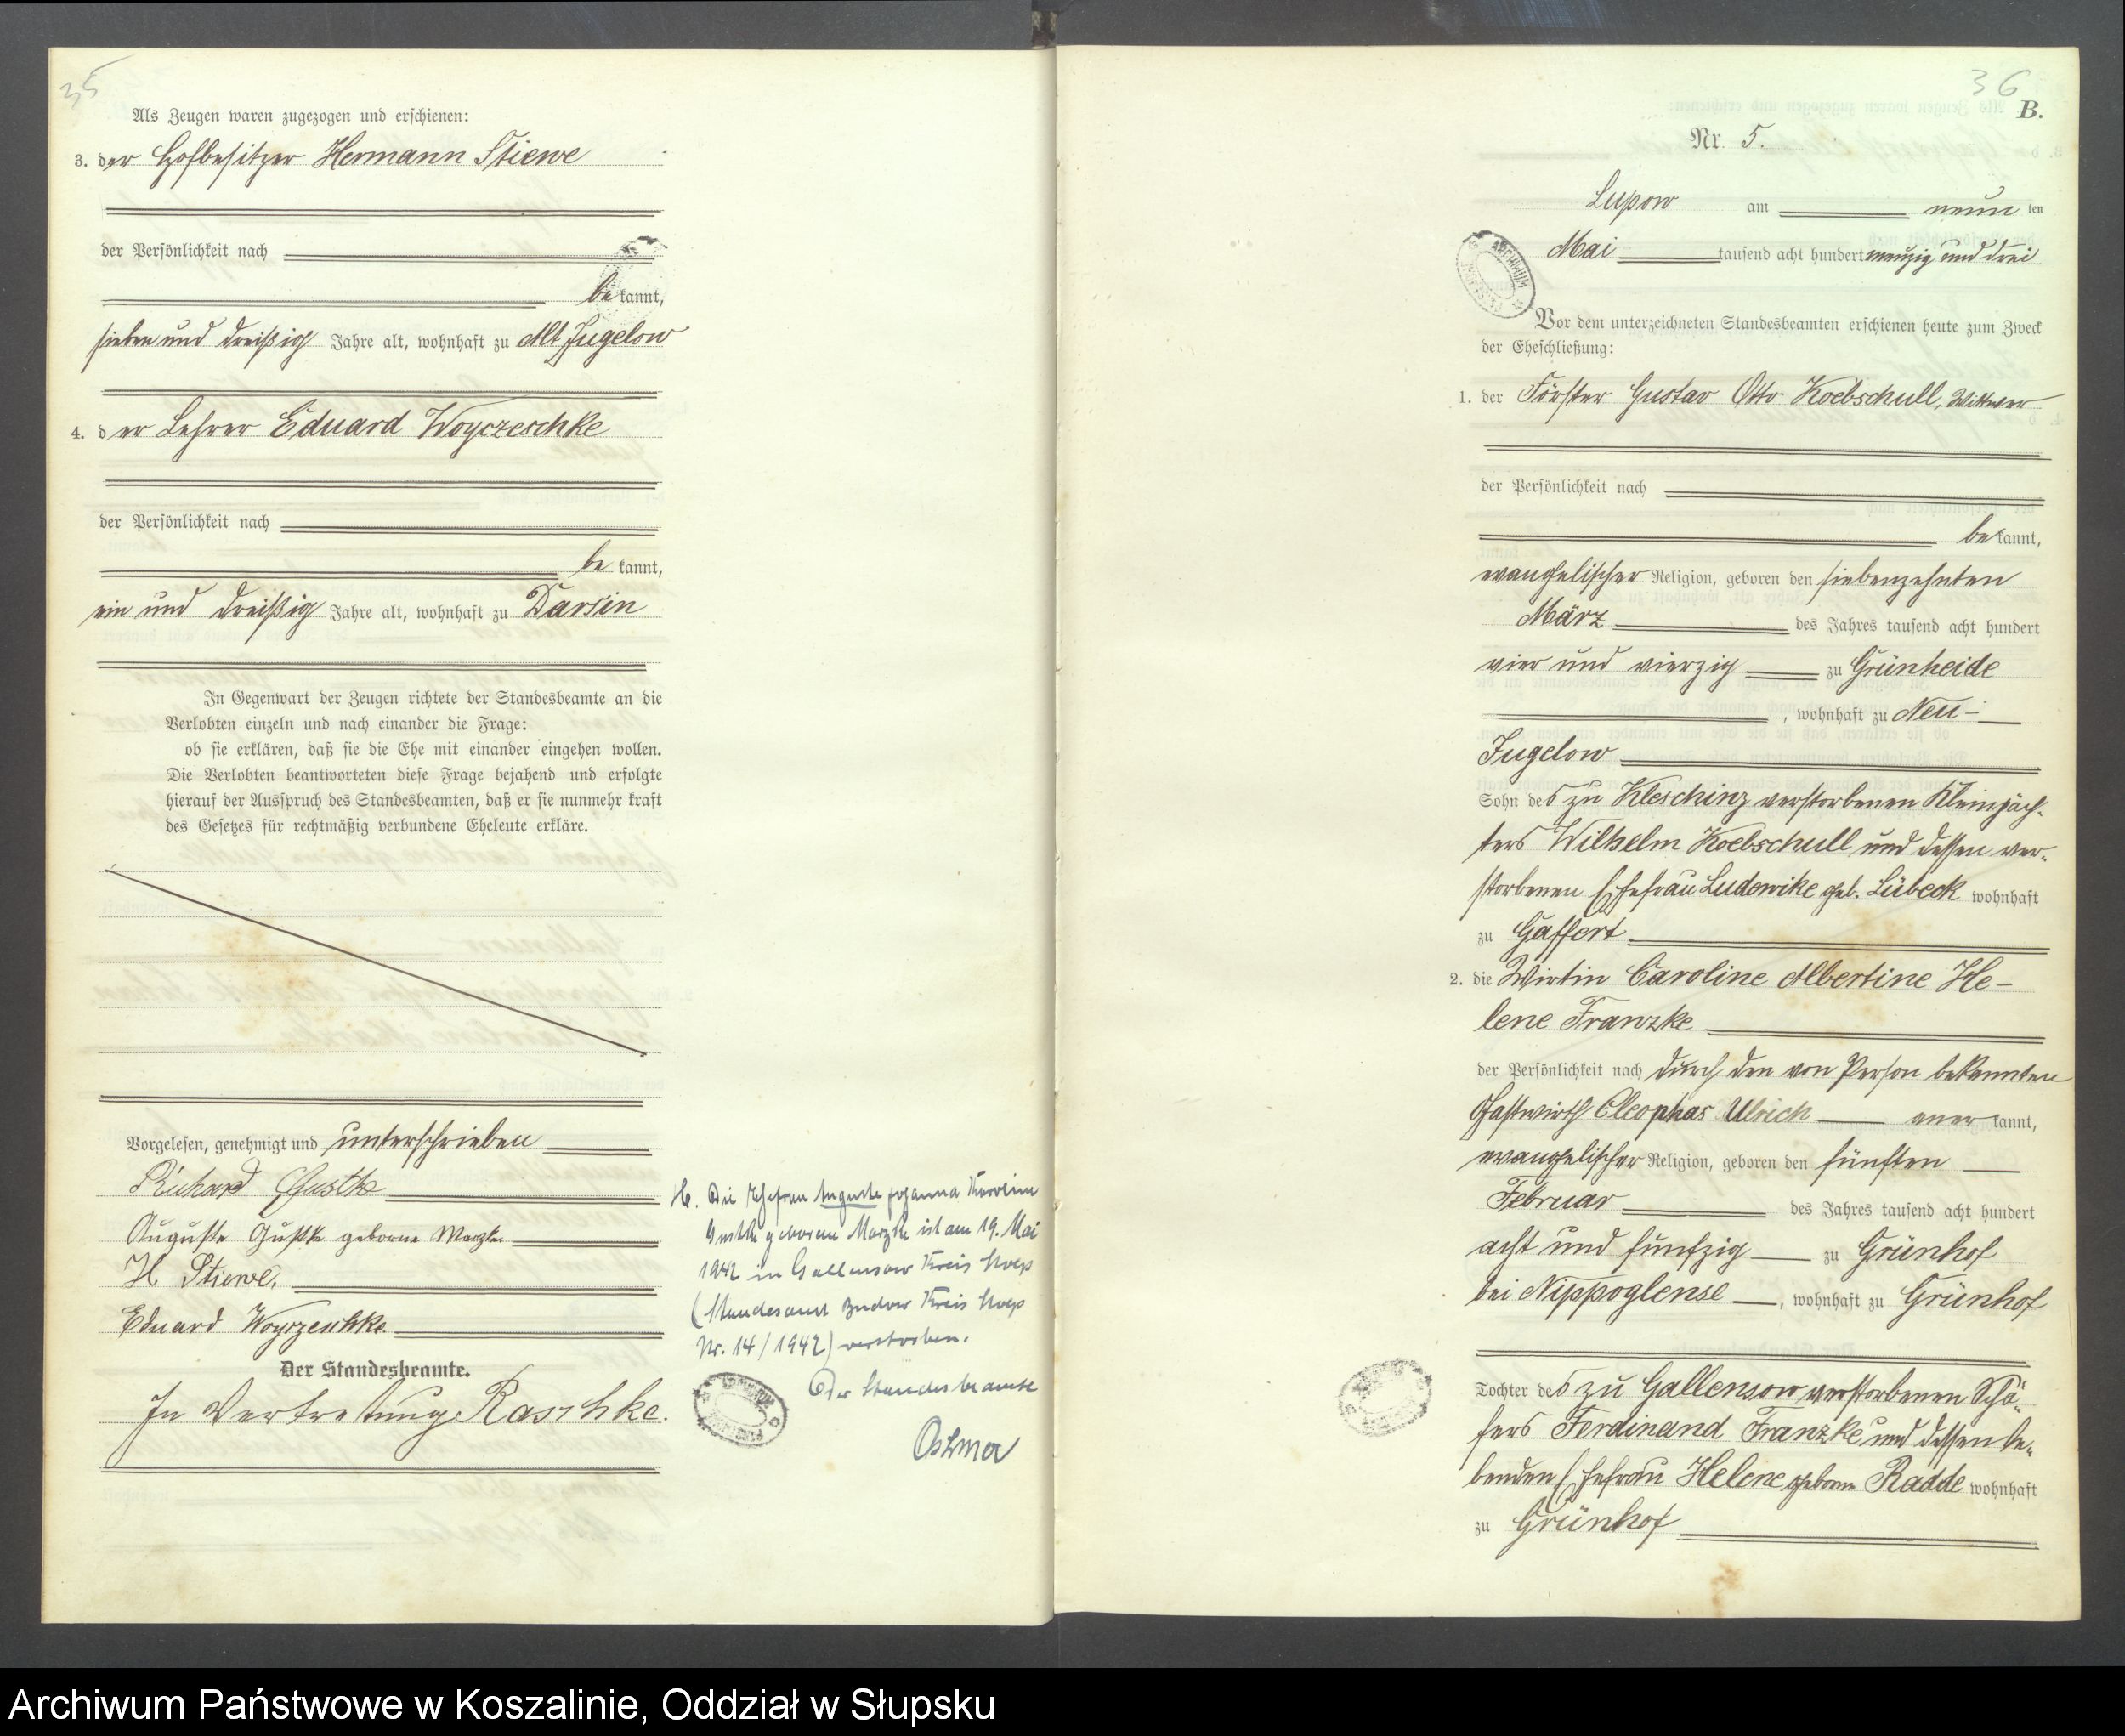 35
Als Zeugen waren zugezogen und erschienen:
3. der Hofbesitzer Hermann Stiewe
der Persönlichkeit nach
be kannt,
sieben und dreißig Jahre alt, wohnhaft zu Alt Jugelow
4. der Lehrer Eduard Woyczeschke
der Persönlichkeit nach
be kannt,
ein und dreißig Jahre alt, wohnhaft zu Darsin
In Gegenwart der Zeugen richtete der Standesbeamte an die
Verlobten einzeln und nach einander die Frage:
ob sie erklären, daß sie die Ehe mit einander eingehen wollen.
Die Verlobten beantworteten diese Frage bejahend und erfolgte
hierauf der Ausspruch des Standesbeamten, daß er sie nunmehr kraft
des Gesetzes für rechtmäßig verbundene Eheleute erkläre.
Vorgelesen, genehmigt und unterschrieben
Richard Gustke
Auguste Gustke geborne Marzke
H Stiewe.
Eduard Woyczeschke.
Der Standesbeamte.
In Vertretung Raschke.
H. Die Ehefrau Auguste Johanna Karoline
Gustke geborene Marzke ist am 19. Mai
1942 in Gallensow Kreis Stolp
(Standesamt Budow Kreis Stolp
Nr. 14/1942) verstorben.
Der Standesbeamte
ARCHIWUM
36
B.
Nr. 5.
Lupow am neun ten
Mai tausend acht hundert neunzig und drei
ARCHIWUM
Vor dem unterzeichneten Standesbeamten erschienen heute zum Zweck
der Eheschließung:
1. der Förster Gustav Otto Koebschull, Wittwer
der Persönlichkeit nach
be kannt,
evangelischer Religion, geboren den siebenzehnten
März des Jahres tausend acht hundert
vier und vierzig zu Grünheide
, wohnhaft zu Neu-
Jugelow
Sohn des zu Kleschinz verstorbenen Kleinpäch-
ters Wilhelm Koebschull und dessen ver-
storbenen Ehefrau Ludewike geb. Lübeck wohnhaft
zu Gaffert
2. die Wirtin Caroline Albertine He-
lene Franzke
der Persönlichkeit nach durch den von Person bekannten
Gastwirth Cleophas Ulrich aner kannt,
evangelischer Religion, geboren den fünften
Februar des Jahres tausend acht hundert
acht und fünfzig zu Grünhof
bei Nippoglense, wohnhaft zu Grünhof
Tochter des zu Gallensow verstorbenen Schä-
fers Ferdinand Franzke und dessen le-
benden Ehefrau Helene geborne Radde wohnhaft
zu Grünhof
Archiwum Państwowe w Koszalinie, Oddział w Słupsku